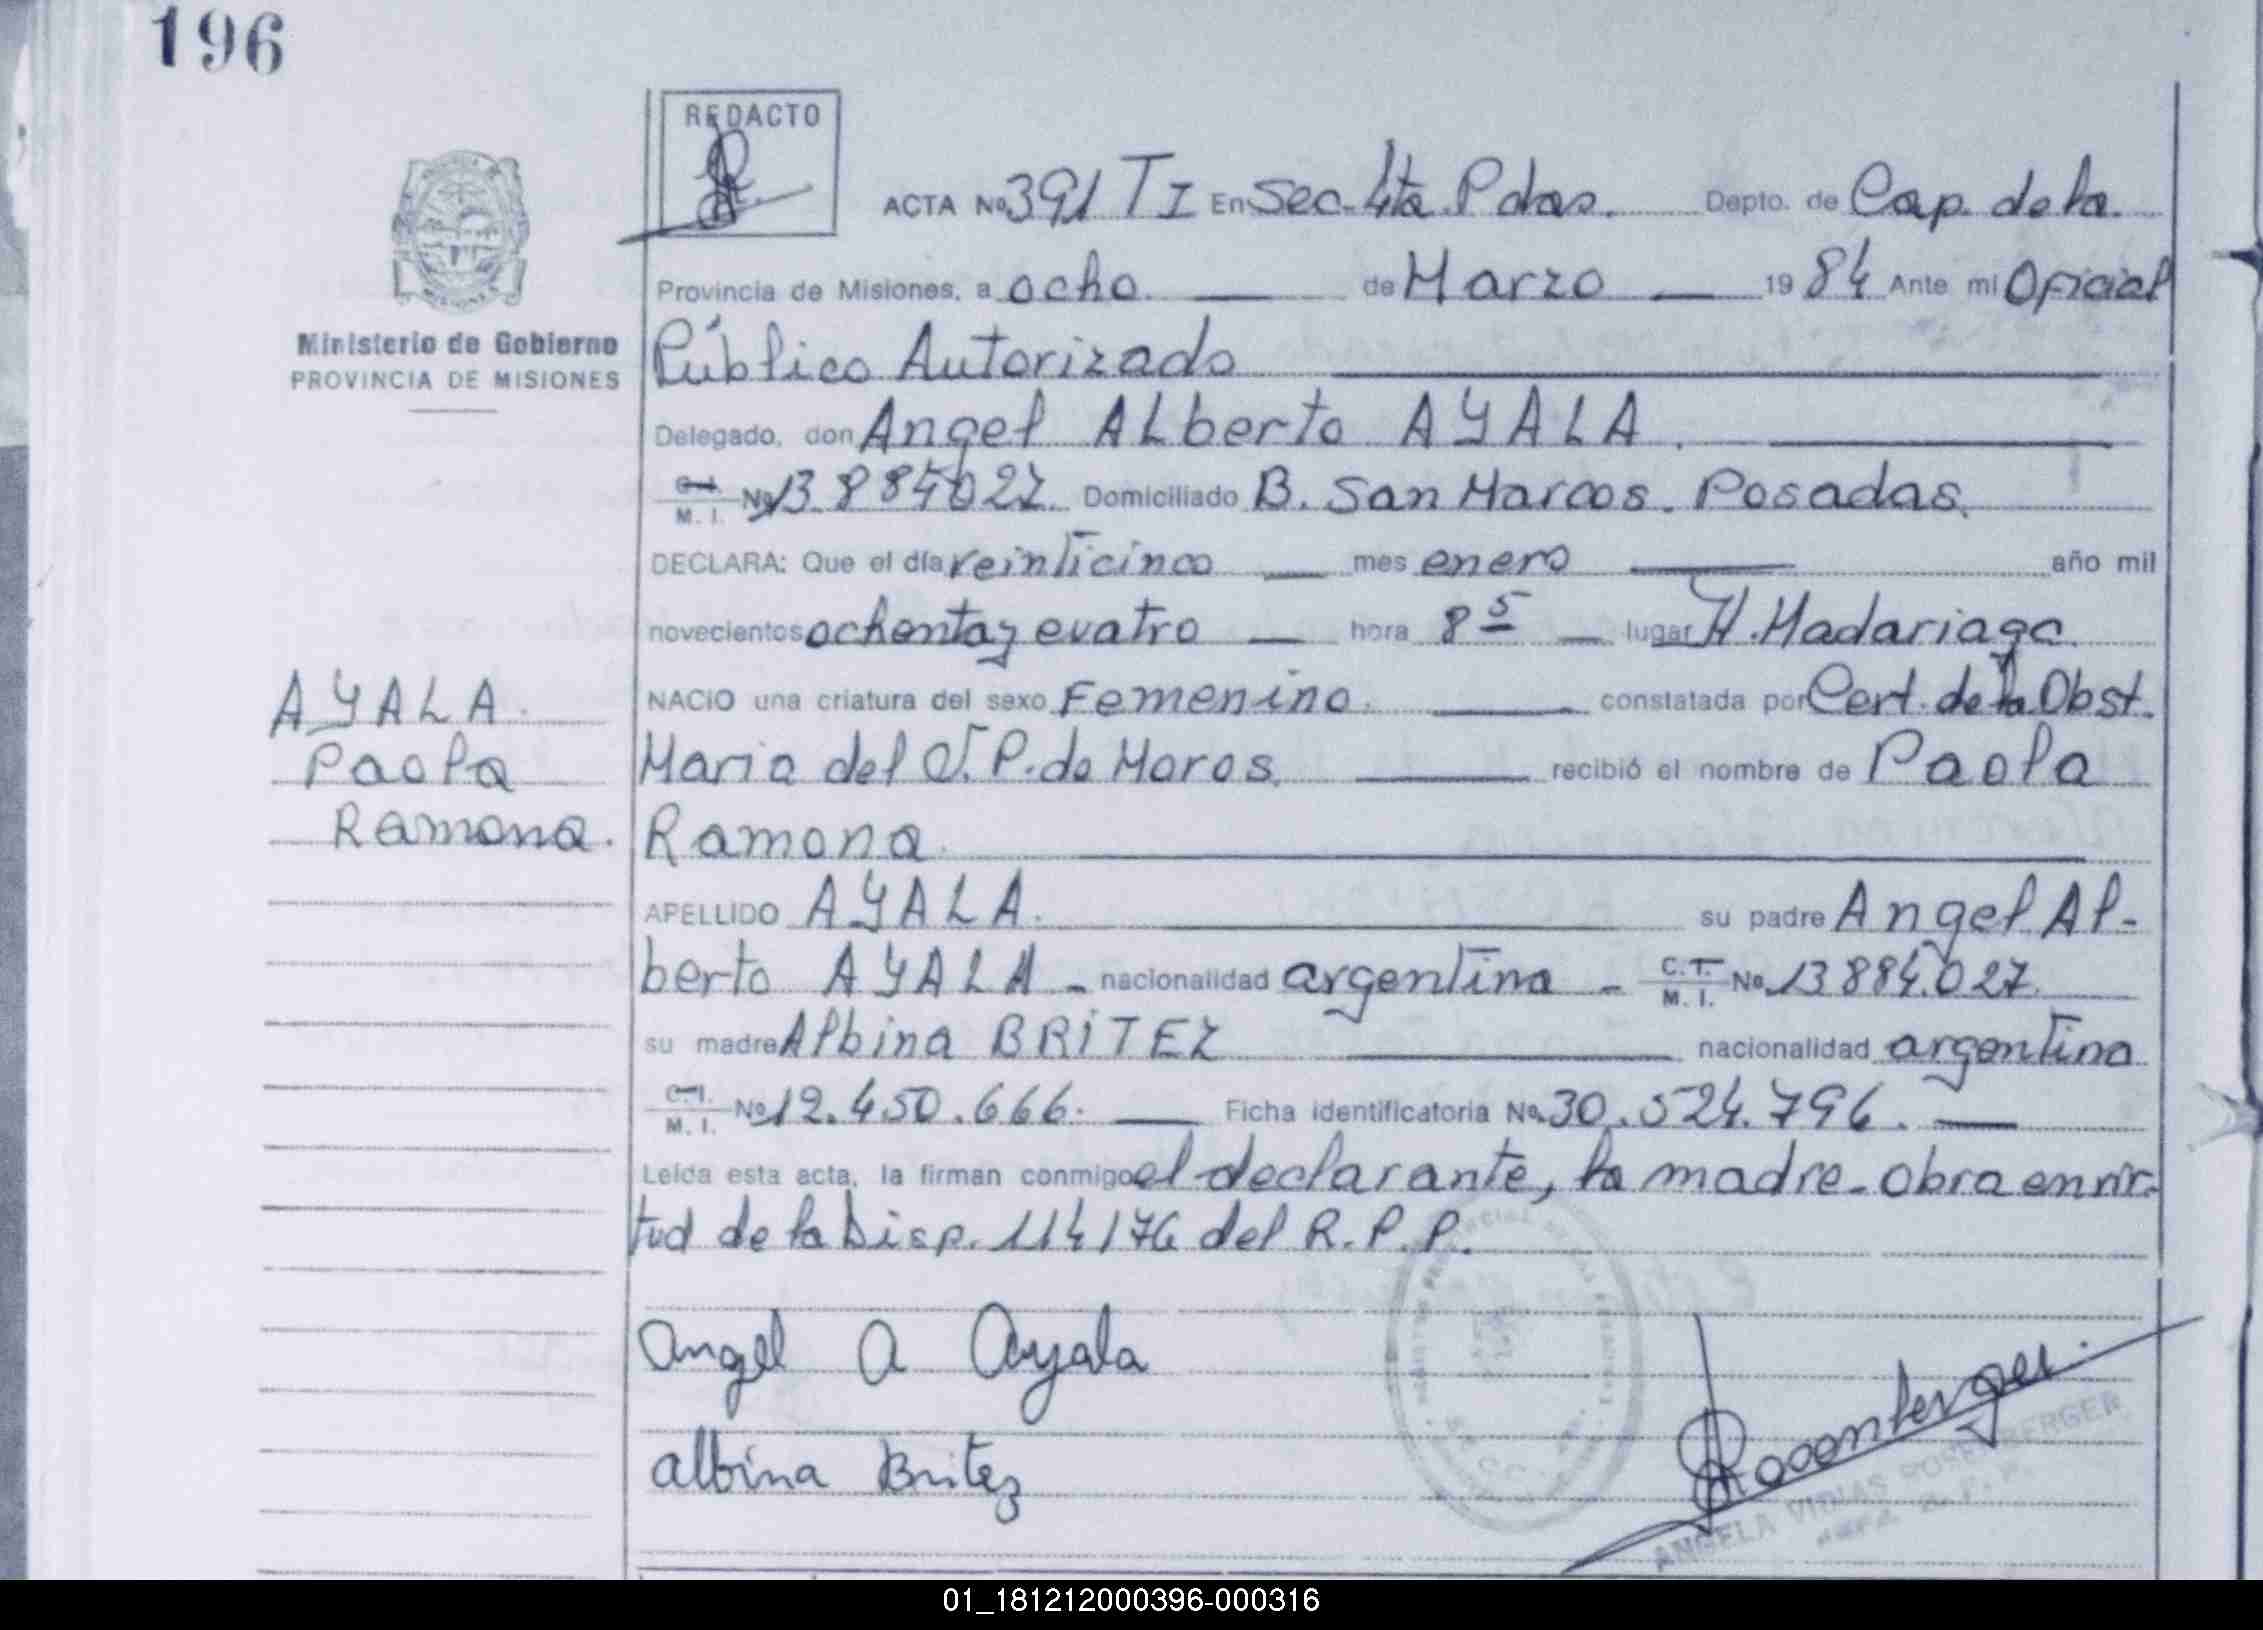 196
REDACTO
ACTA No 391 T I En Sec. 4ta. Pdas. Depto. de Cap. de la
Provincia de Misiones, a ocho. de Marzo 19 84 Ante mi Oficial
Ministerio de Gobierno
PROVINCIA DE MISIONES
Público Autorizado
Delegado, don Angel ALberto AYALA.
C.I. M. I. No 13.884.027. Domiciliado B. San Marcos. Posadas.
DECLARA: Que el día veinticinco mes enero año mil
novecientos ochenta y cuatro hora 8 5 lugar H. Madariaga.
AYALA.
Paola
Ramona.
NACIO una criatura del sexo Femenino. constatada por Cert. de la Obst.
Maria del P. de Moros. recibió el nombre de Paola
Ramona.
APELLIDO AYALA. su padre Angel Al-
berto AYALA - nacionalidad argentina - C.I. M. I. No 13.884.027.
su madre Albina BRITEZ nacionalidad argentina
C.I. M. I. No 12.450.666. Ficha identificatoria No 30.524.796.
Leída esta acta, la firman conmigo el declarante, la madre. obra en vir-
tud de la Disp. 114/76 del R.P.P.
Angel A Ayala
Albina Britez
Rosenberger.
ANGELA VIÑAS ROSENBERGER
01_181212000396-000316